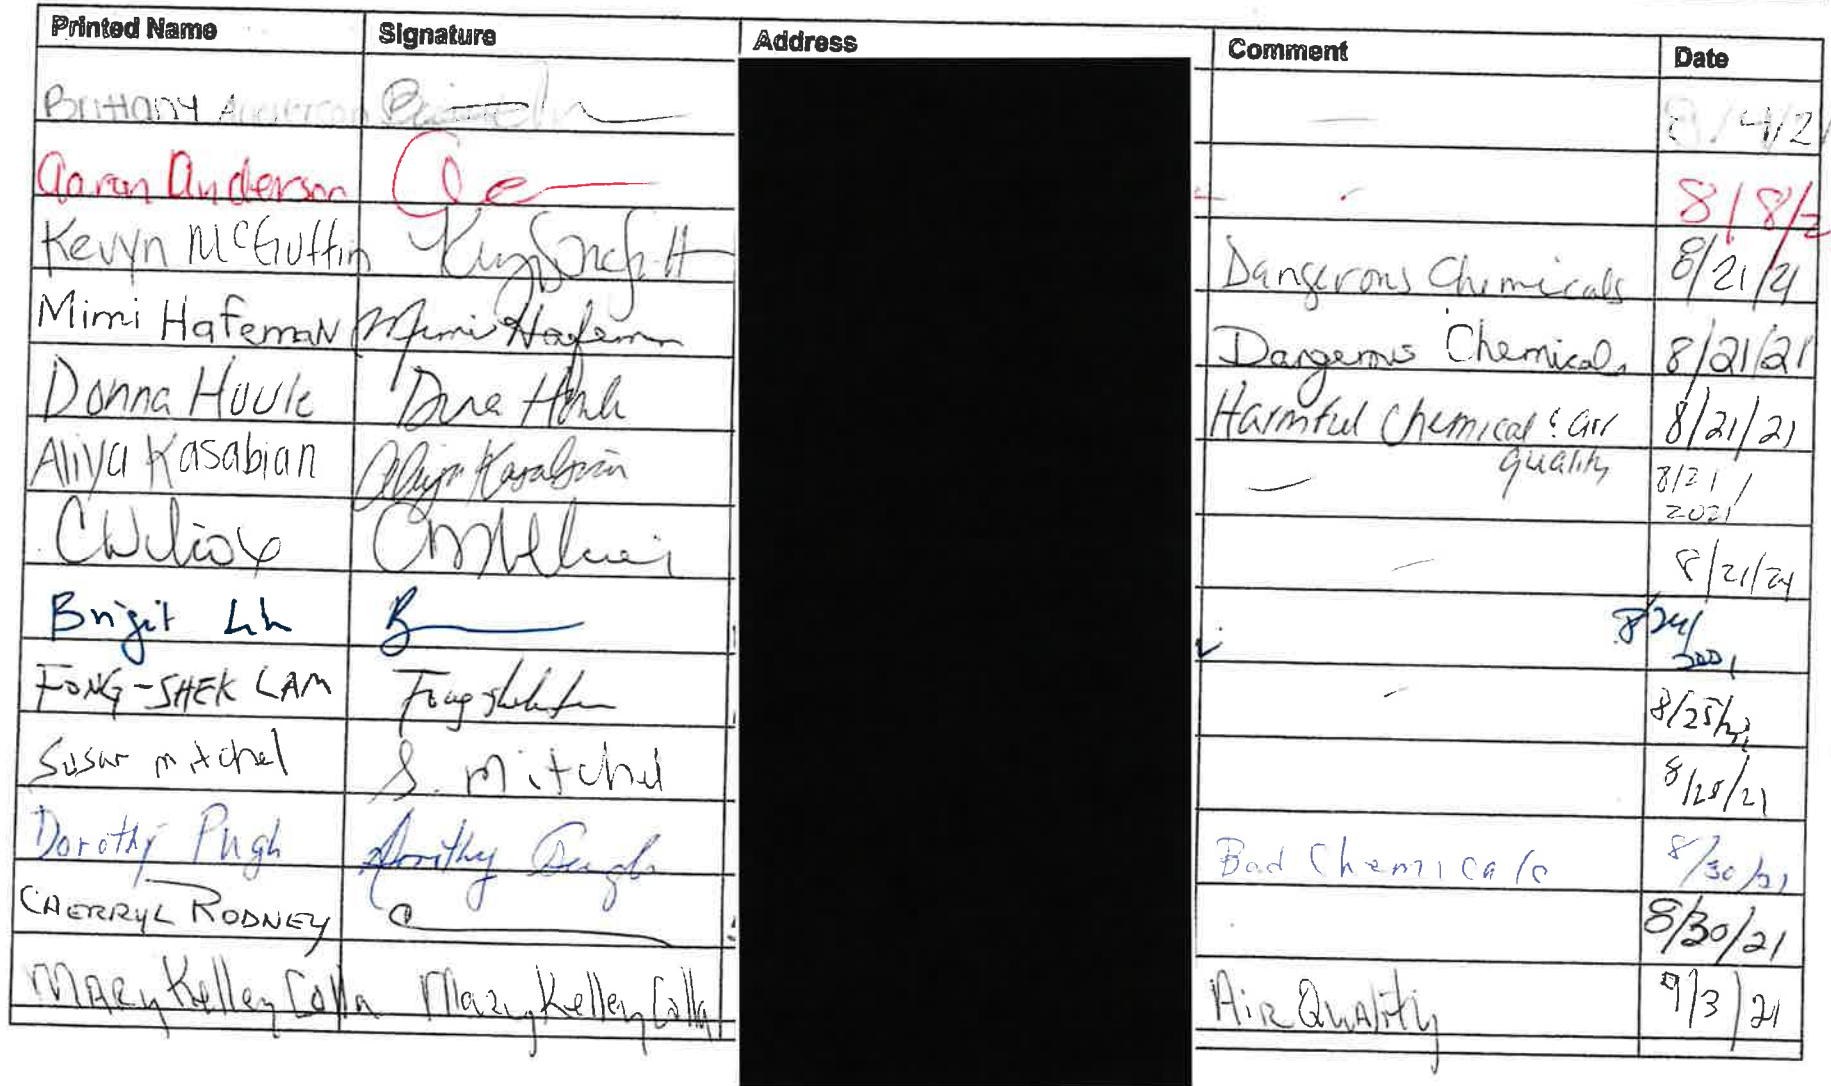 Printed Name Signature Address Comment Date
Brittany Anderson
Aaron Anderson 8/8/2
Kevyn McGuffin Dangerous Chemicals 8/21/21
Mimi HafemaN Mimi Hafeman Dangerous Chemicals 8/21/21
Donna Houle Harmful Chemical & air 8/21/21
quality
Aliya Kasabian Aliya Kasabian — 8/21/
2021
CWilcox 8/21/21
Brigit 8/24/
2021
FONG-SHEK LAM 8/25/21
Susan mitchel S. mitchel 8/25/21
Dorothy Pugh Dorothy Pugh Bad Chemicals 8/30/21
CHERRYL RODNEY 8/30/21
MARy Kelley Colla Mary Kelley Colla AiR QuAlity 9/3/21